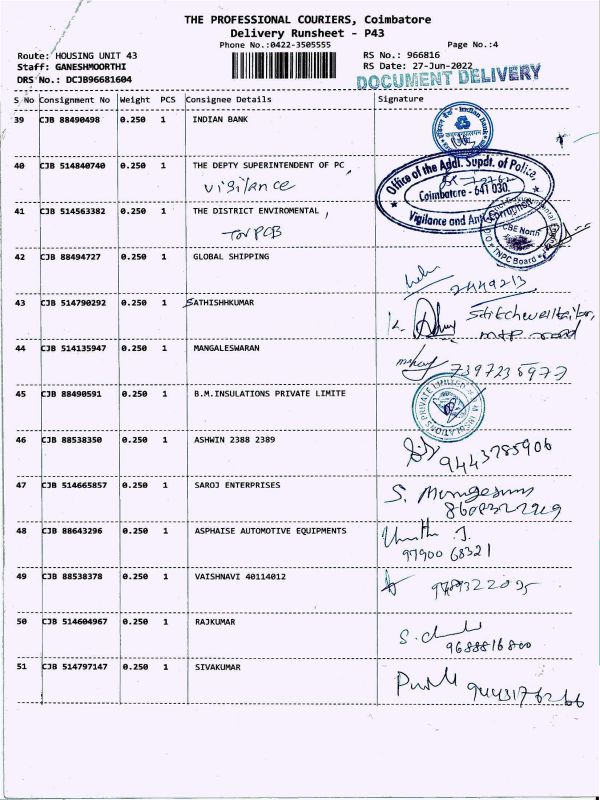 THE PROFESSIONAL COURIERS, Coimbatore
Delivery Runsheet - P43
Phone No.:0422-3505555
Page No.:4
Route: HOUSING UNIT 43
RS No.: 966816
Staff: GANESHMOORTHI
RS Date: 27-Jun-2022
DRS No.: DCJB96681604
DOCUMENT DELIVERY
S No Consignment No Weight PCS Consignee Details Signature
39 CJB 88490498 0.250 1 INDIAN BANK
Indian Bank
40 CJB 514840740 0.250 1 THE DEPTY SUPERINTENDENT OF PC
vigilance
Office of the Addl. Supdt. of Police,
Coimbatore - 641 030.
Vigilance and Anti-Corruption
41 CJB 514563382 0.250 1 THE DISTRICT ENVIROMENTAL
CBE North
TNPC Board
42 CJB 88494727 0.250 1 GLOBAL SHIPPING
2449213
43 CJB 514790292 0.250 1 SATHISHHKUMAR
mtp road
44 CJB 514135947 0.250 1 MANGALESWARAN
45 CJB 88490591 0.250 1 B.M.INSULATIONS PRIVATE LIMITE
PRIVATE LIMITED
46 CJB 88538350 0.250 1 ASHWIN 2388 2389
9443785906
47 CJB 514665857 0.250 1 SAROJ ENTERPRISES
S. Murugesan
48 CJB 88643296 0.250 1 ASPHAISE AUTOMOTIVE EQUIPMENTS
97900 68321
49 CJB 88538378 0.250 1 VAISHNAVI 40114012
50 CJB 514604967 0.250 1 RAJKUMAR
9688816800
51 CJB 514797147 0.250 1 SIVAKUMAR
9443176266